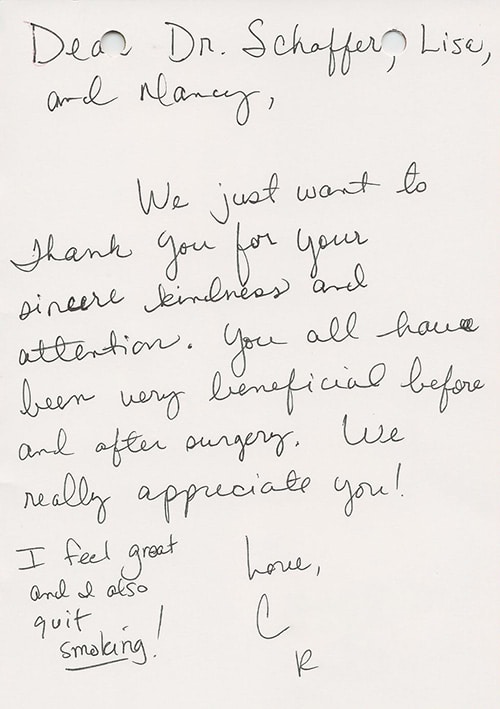 Dear Dr. Schaffer, Lisa,
and Nancy,
We just want to
thank you for your
sincere kindness and
attention. You all have
been very beneficial before
and after surgery. We
really appreciate you!
I feel great
and I also
quit
smoking!
Love,
C
R